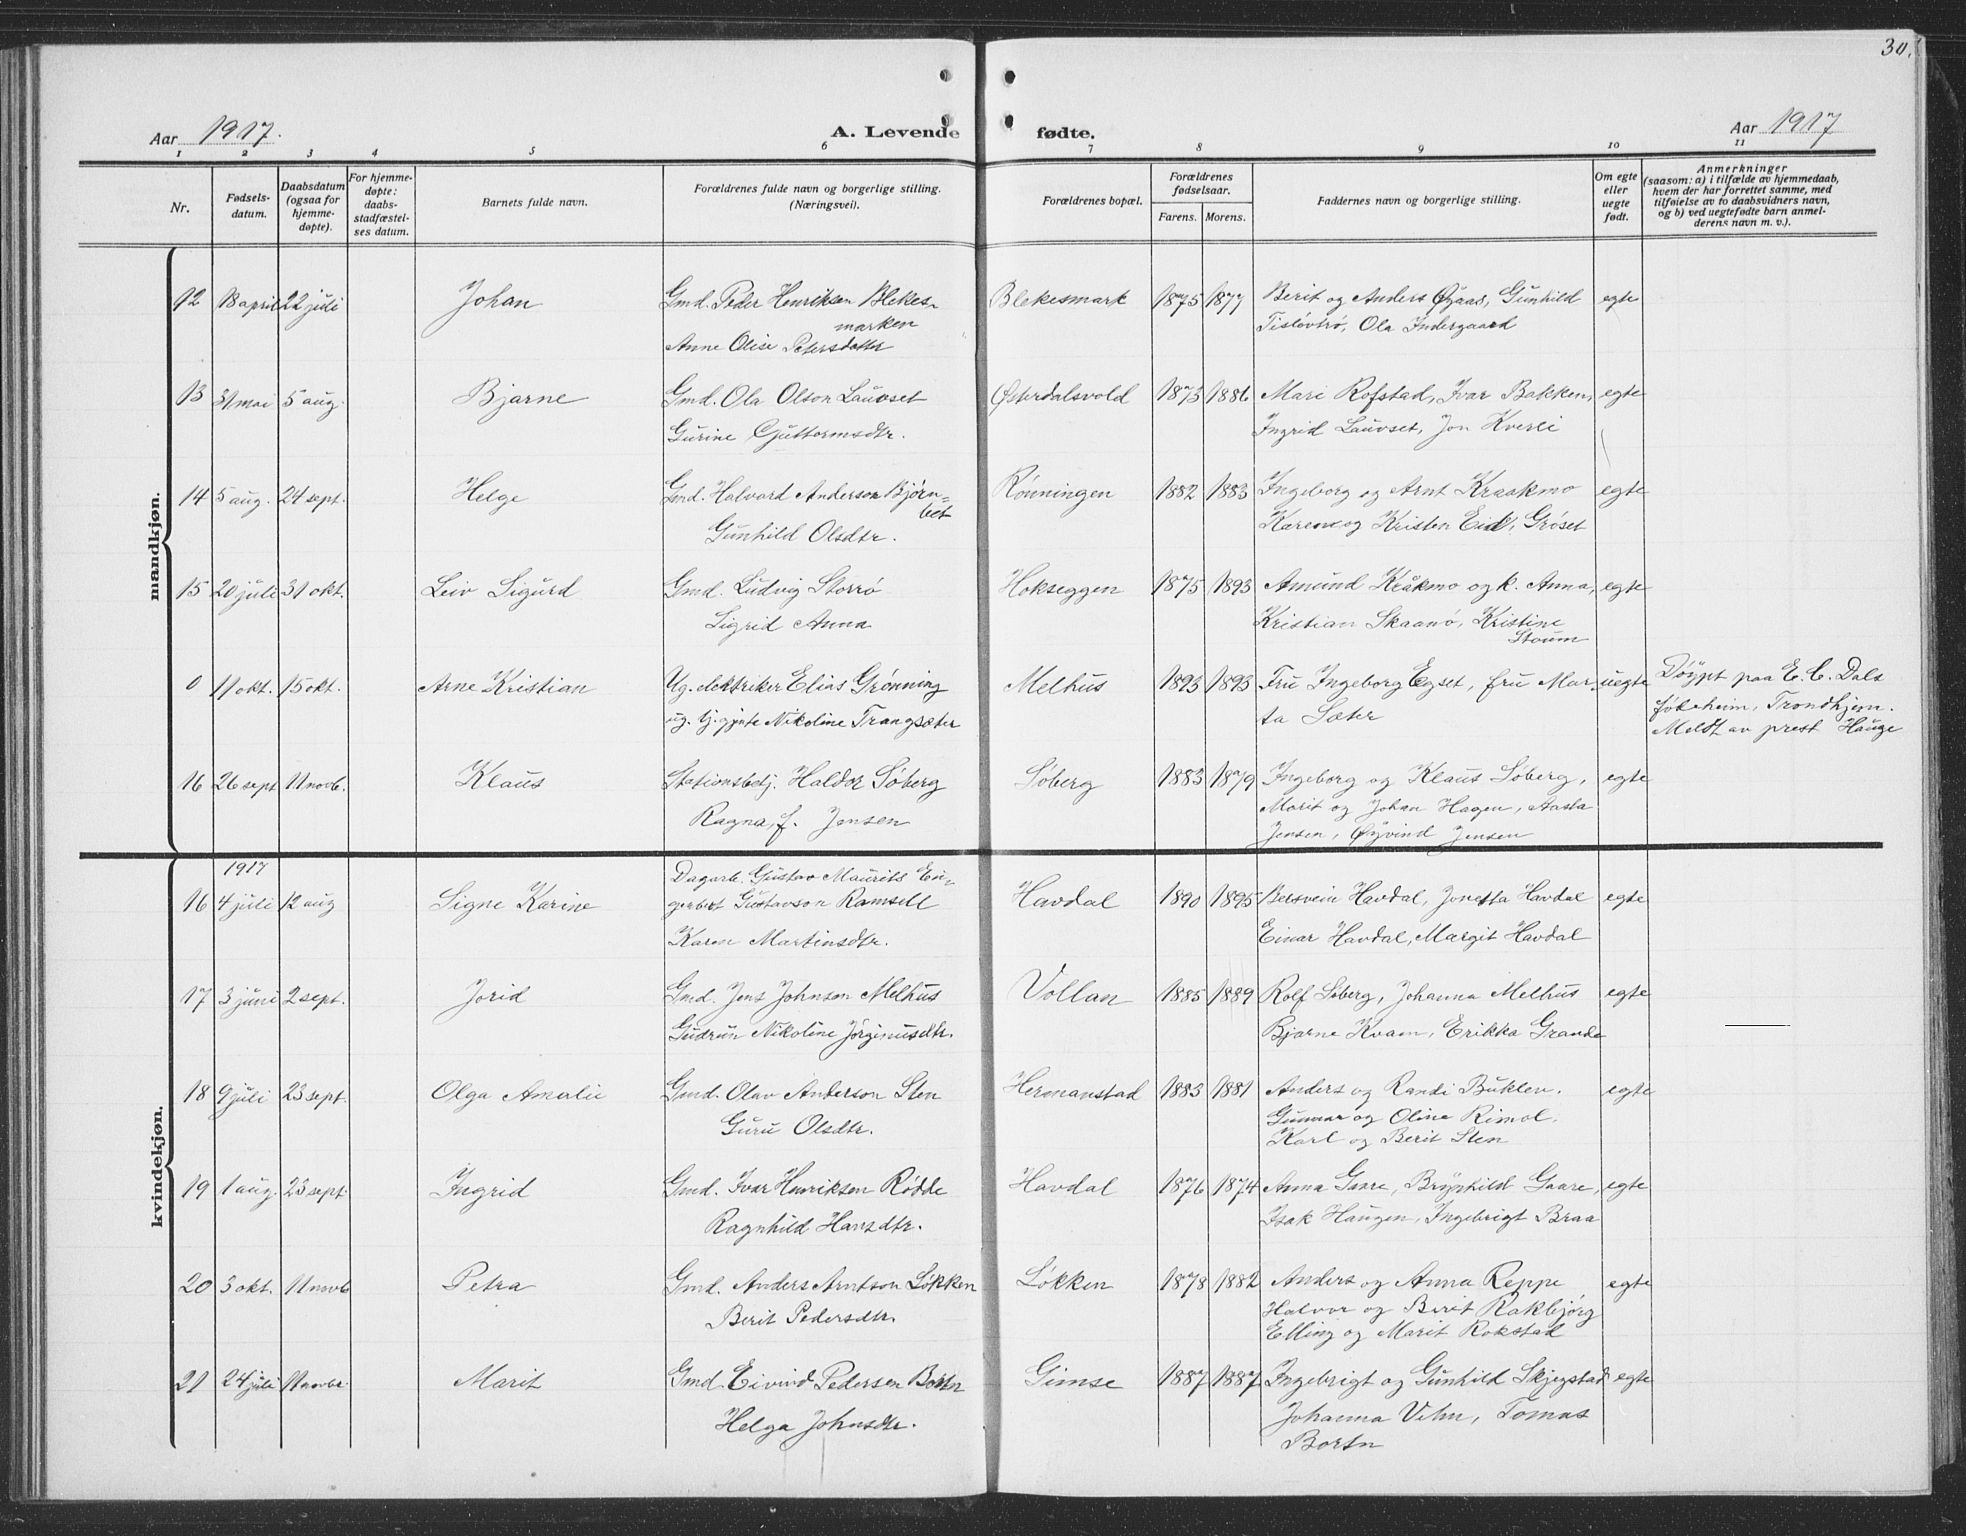 30.
Aar 1917. A. Levende fødte. Aar 1917
1 2 3 4 5 6 7 8 9 10 11
Nr.
Fødsels-
datum.
Daabsdatum
(ogsaa for
hjemme-
døpte).
For hjemme-
døpte:
daabs-
stadfæstel-
ses datum.
Barnets fulde navn.
Forældrenes fulde navn og borgerlige stilling.
(Næringsvei).
Forældrenes bopæl.
Forældrenes
fødselsaar.
Farens. Morens.
Faddernes navn og borgerlige stilling.
Om egte
eller
uegte
født.
Anmerkninger
(saasom: a) i tilfælde av hjemmedaab,
hvem der har forrettet samme, med
tilføielse av to daabsvidners navn,
og b) ved uegtefødte barn anmel-
derens navn m. v.).
mandkjøn.
12 18 april 22 juli Johan Gmd. Peder Henriksen Blekes- Blekesmark 1875 1877 Berit og Anders Øyaas, Gunhild egte
marken Tisløvtrø, Ola Indergaard
Anne Olise Petersdatter
13 31 mai 5 aug. Bjarne Gmd. Ola Olson Lauvset Østerdalsvold 1873 1886 Mari Rofstad, Ivar Bakken, egte
Gurine Guttormsdtr. Ingrid Lauvset, Jon Kverli
14 5 aug. 24 sept. Helge Gmd. Halvard Anderson Bjørn- Rönningen 1882 1883 Ingeborg og Arnt Kraakmo egte
bet
Gunhild Olsdtr. Karen og Kristen Eid, Grøset
15 20 juli 31 okt. Leiv Sigurd Gmd. Ludvig Storrø Hokseggen 1875 1893 Amund Kråkmo og k. Anna, egte
Sigrid Anna Kristian Skaanø, Kristine
Stoum
0 11 okt. 15 okt. Arne Kristian Ug. elektriker Elias Grønning Melhus 1893 1893 Fru Ingeborg Egset, fru Mar- uegte Döypt paa E. C. Dals
ug. tj.gjente Nikoline Trangsæter ta Sæter fødeheim, Trondhjem.
Meldt av prest Hauge
16 26 sept 11 novb. Klaus Stationsbetj. Haldor Søberg Søberg 1883 1879 Ingeborg og Klaus Søberg, egte
Ragna, f. Jensen Marit og Johan Hagen, Aasta
Jensen, Øyvind Jensen
kvindekjøn.
1917
16 4 juli 12 aug Signe Karine Dagarb. Gustav Maurits En- Havdal 1890 1895 Bersvein Havdal, Jonetta Havdal egte
gerbert Gustavson Ramsell
Karen Martinsdtr. Einar Havdal, Margit Havdal
17 3 juni 2 sept. Jorid Gmd. Jens Johnsen Melhus Vollan 1885 1889 Rolf Søberg, Johanna Melhus egte
Gudrun Nikoline Jørginusdtr. Bjarne Kvam, Erikka Grande
18 9 juli 23 sept. Olga Amalie Gmd. Olav Anderson Sten Hermanstad 1883 1881 Anders og Randi Buklen. egte
Guru Olsdtr. Gunnar og Oline Rimol.
Karl og Berit Sten
19 1 aug. 23 sept. Ingrid Gmd. Ivar Henriksen Rødde Havdal 1876 1874 Anna Gaare, Brynhild Gaare, egte
Ragnhild Hansdtr. Isak Haugen, Ingebrigt Braa
20 3 okt. 11 novb Petra Gmd. Anders Arntson Løkken Løkken 1878 1882 Anders og Anna Reppe egte
Berit Pedersdtr. Halvor og Berit Rakbjørg
Elling og Marit Rokstad
21 24 juli 11 novbr. Marit Gmd. Eivind Pedersen Bortn Gimse 1887 1887 Ingebrigt og Gunhild Skjegstad egte
Helga Johnsdtr. Johanna Vehn, Tomas
Bortn